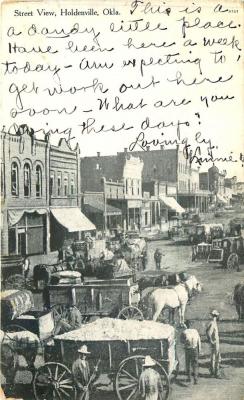 Street View, Holdenville, Okla.
This is a
a dandy little place.
Have been here a week
today - Am expecting to
get work out here
soon - What are you
doing these days?
Lovingly,